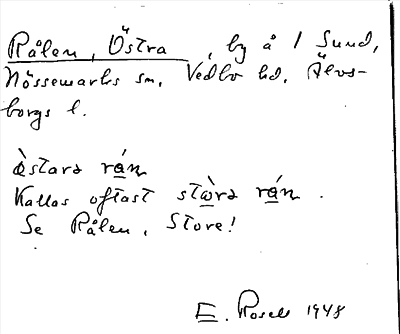 Rålen, Östra, by å 1 Sund,
Nössemarks sn, Vedbo hd, Älvs-
borgs l.
östarə rån
Kallas oftast störə rån.
Se Rålen, Store!
E. Rosell 1948